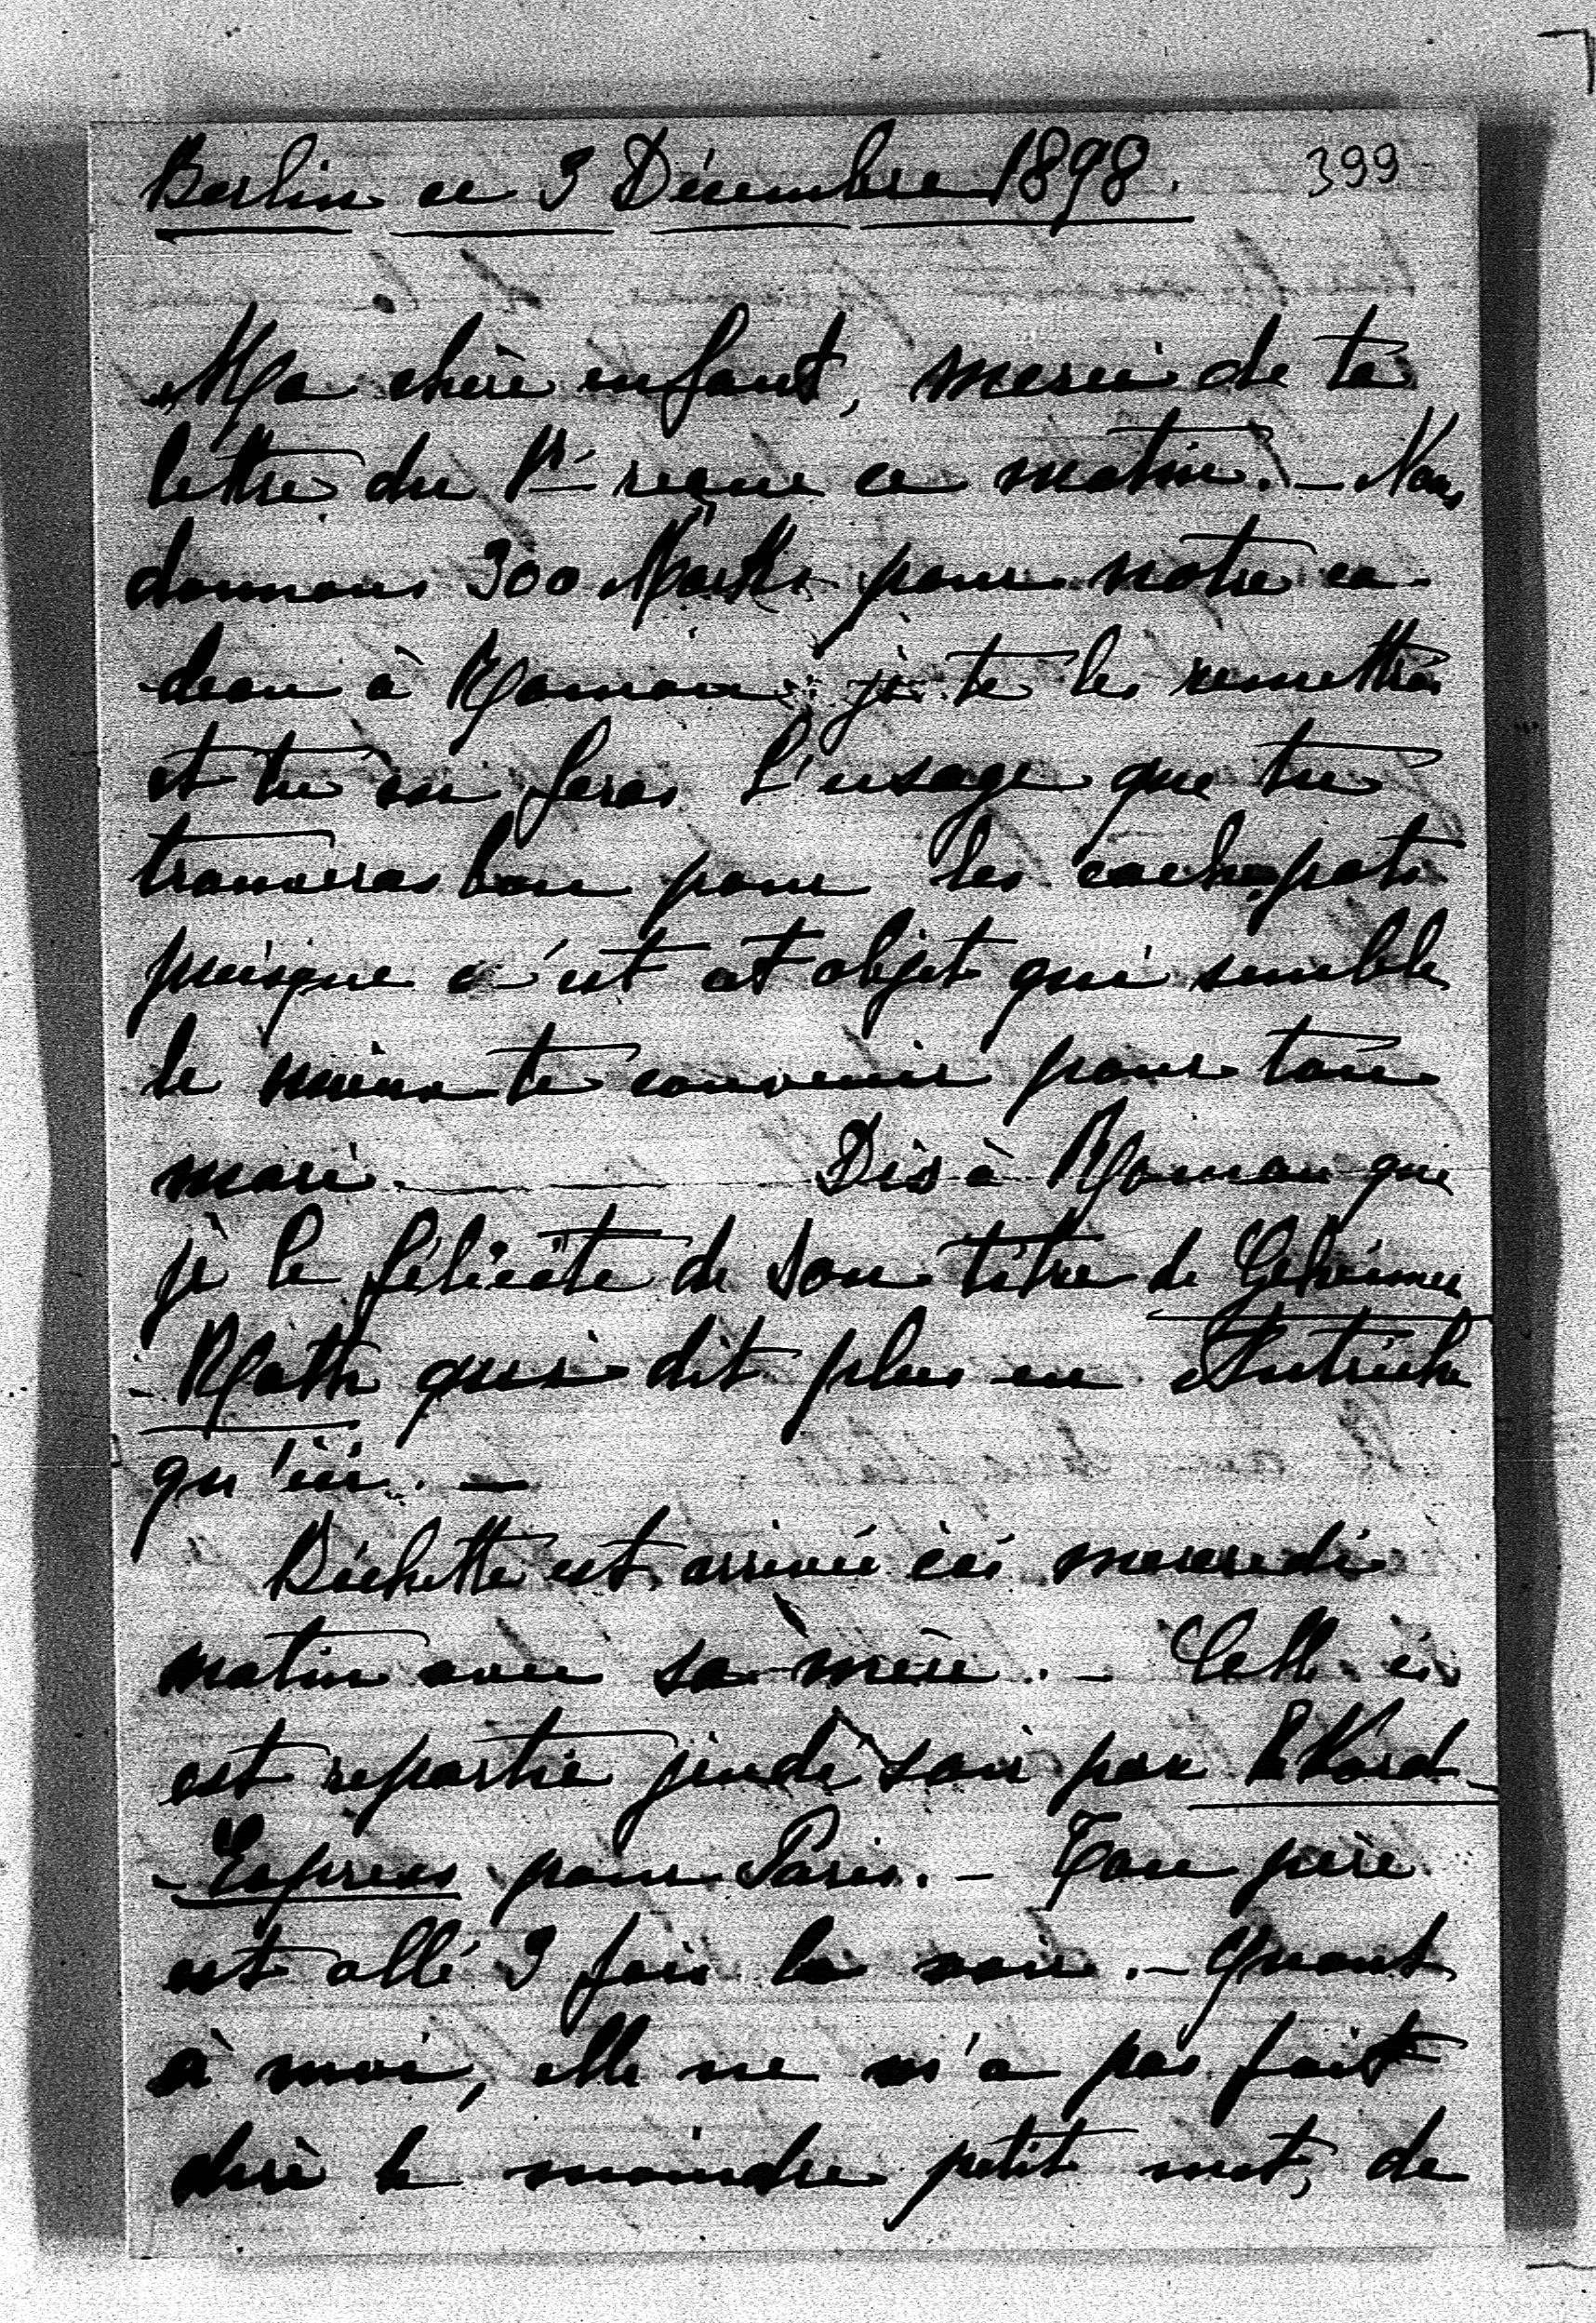 Berlin ce 3 Décembre 1898. 399
Ma chère enfant, merci de ta
lettre du 1er reçue ce matin. – Nous
donnons 300 Marks pour notre ca-
-deau à Roman; je te les remettrai
et tu en feras l'usage que tu
trouveras bon pour les cache-pots
puisque c'est cet objet qui semble
le mieux te convenir pour ton
mari. Dis à Roman que
je le félicite de son titre de Geheimer
-Rath qui dit plus en Autriche
qu'ici. –
Bichette est arrivée ici mercredi
matin avec sa mère. – Celle-ci
est repartie jeudi soir par le Nord-
-Express pour Paris. – Ton père
est allé 3 fois la voir. – Quant
à moi, elle ne m'a pas fait
dire le moindre petit mot, de